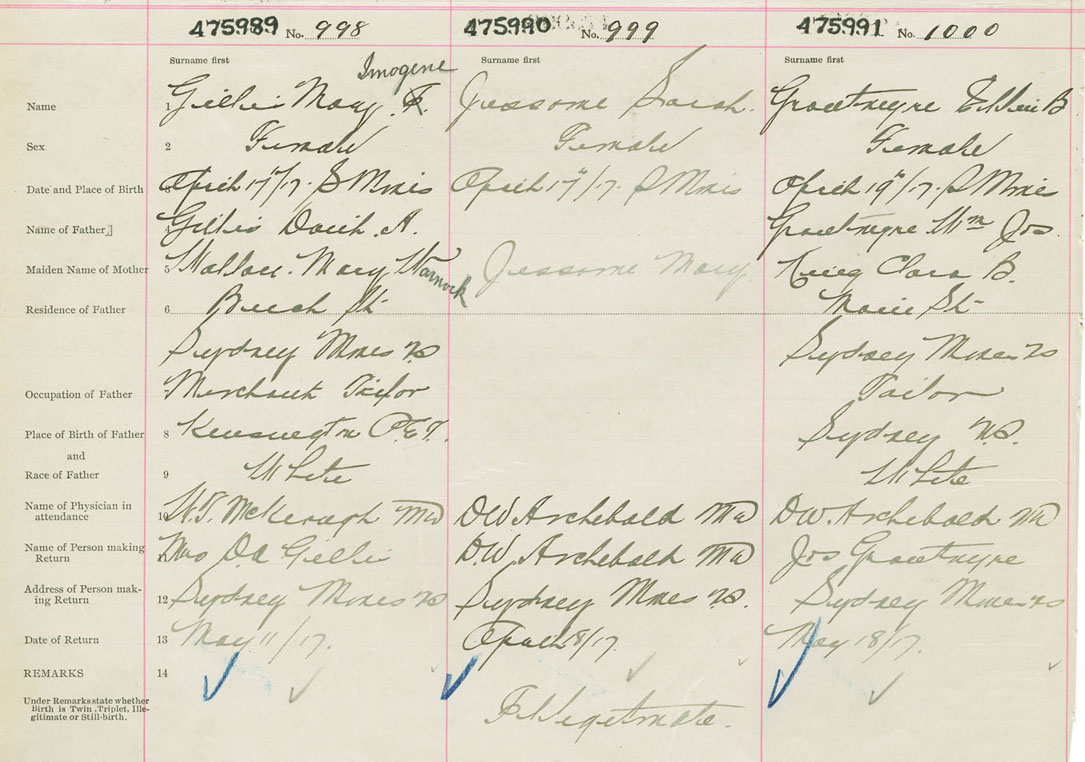 475989 No. 998 475990 No. 999 475991 No. 1000
Surname first Surname first Surname first
Imogene
Name 1 Gillis Mary F. Jessome Sarah. B
Sex 2 Female Female Female
Date and Place of Birth April 17"/17. S Mines April 17"/17. S Mines April 19"/17. S Mines
Name of Father 4 Gillis David. A. Wm Jos.
Maiden Name of Mother 5 Wallace. Mary Warnock Jessome Mary. Clara B.
Residence of Father 6 Beech St Main St
Sydney Mines NS Sydney Mines NS
Occupation of Father 7 Merchant Tailor Tailor
Place of Birth of Father 8 Kensington P.E.I. Sydney N.S.
and
Race of Father 9 White White
Name of Physician in
attendance 10 W.T. McKeough MD D.W. Archebald MD D.W. Archebald MD
Name of Person making
Return 11 Mrs D.A Gillis D.W. Archebald MD Jos
Address of Person mak-
ing Return 12 Sydney Mines NS Sydney Mines NS. Sydney Mines NS
Date of Return 13 May 11/17. April 18/17. May 18/17.
REMARKS 14
Under Remarks state whether
Birth is Twin, Triplet, Ille-
gitimate or Still-birth. Illegitmate.